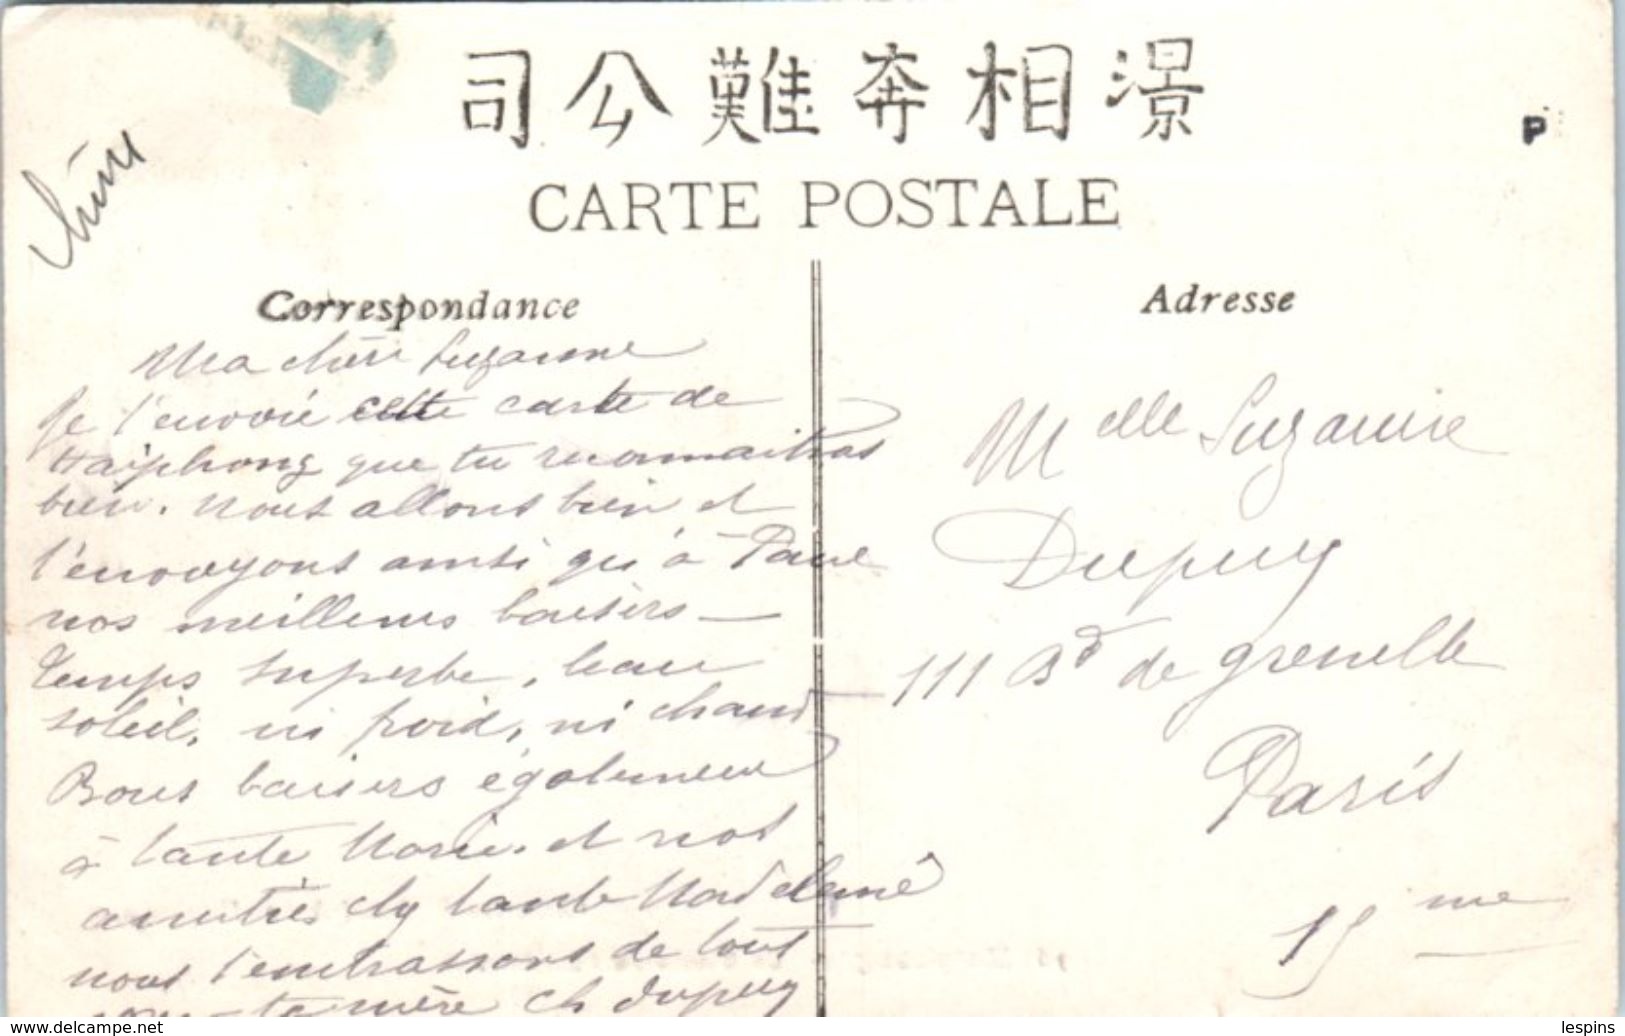 司公難奔相澋
P
CARTE POSTALE
Correspondance
Adresse
Ma chère Suzanne
Je t'envoie cette carte de
Haïphong que tu reconnaitras
bien. Nous allons bien et
t'envoyons ainsi qu'à Paul
nos meilleurs baisers —
Temps superbe, beau
soleil, ni froid, ni chaud
Bons baisers également
à tante Marie. et nos
amitiés chz tante Madeleine
nous t'embrassons de tout
ta mère Ch Dupuy
Melle Suzanne
Dupuy
111 Bd de grenelle
Paris
15 me
delcampe.net
lespins